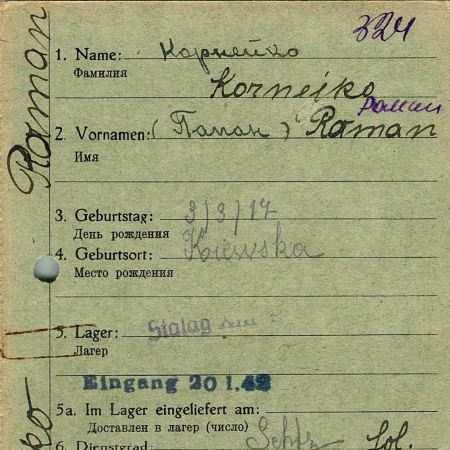 324
1. Name: Корнейко
Фамилия
Korneiko
Роман
2. Vornamen: (Папан) Roman
Имя
3. Geburtstag: 3/3/17
День рождения
4. Geburtsort: Kiewska
Место рождения
5. Lager: Stalag
Лагер
Eingang 20 1.42
5a. Im Lager eingeliefert am:
Доставлен в лагер (число)
6. Dienstgrad: Sol.
Roman
ko